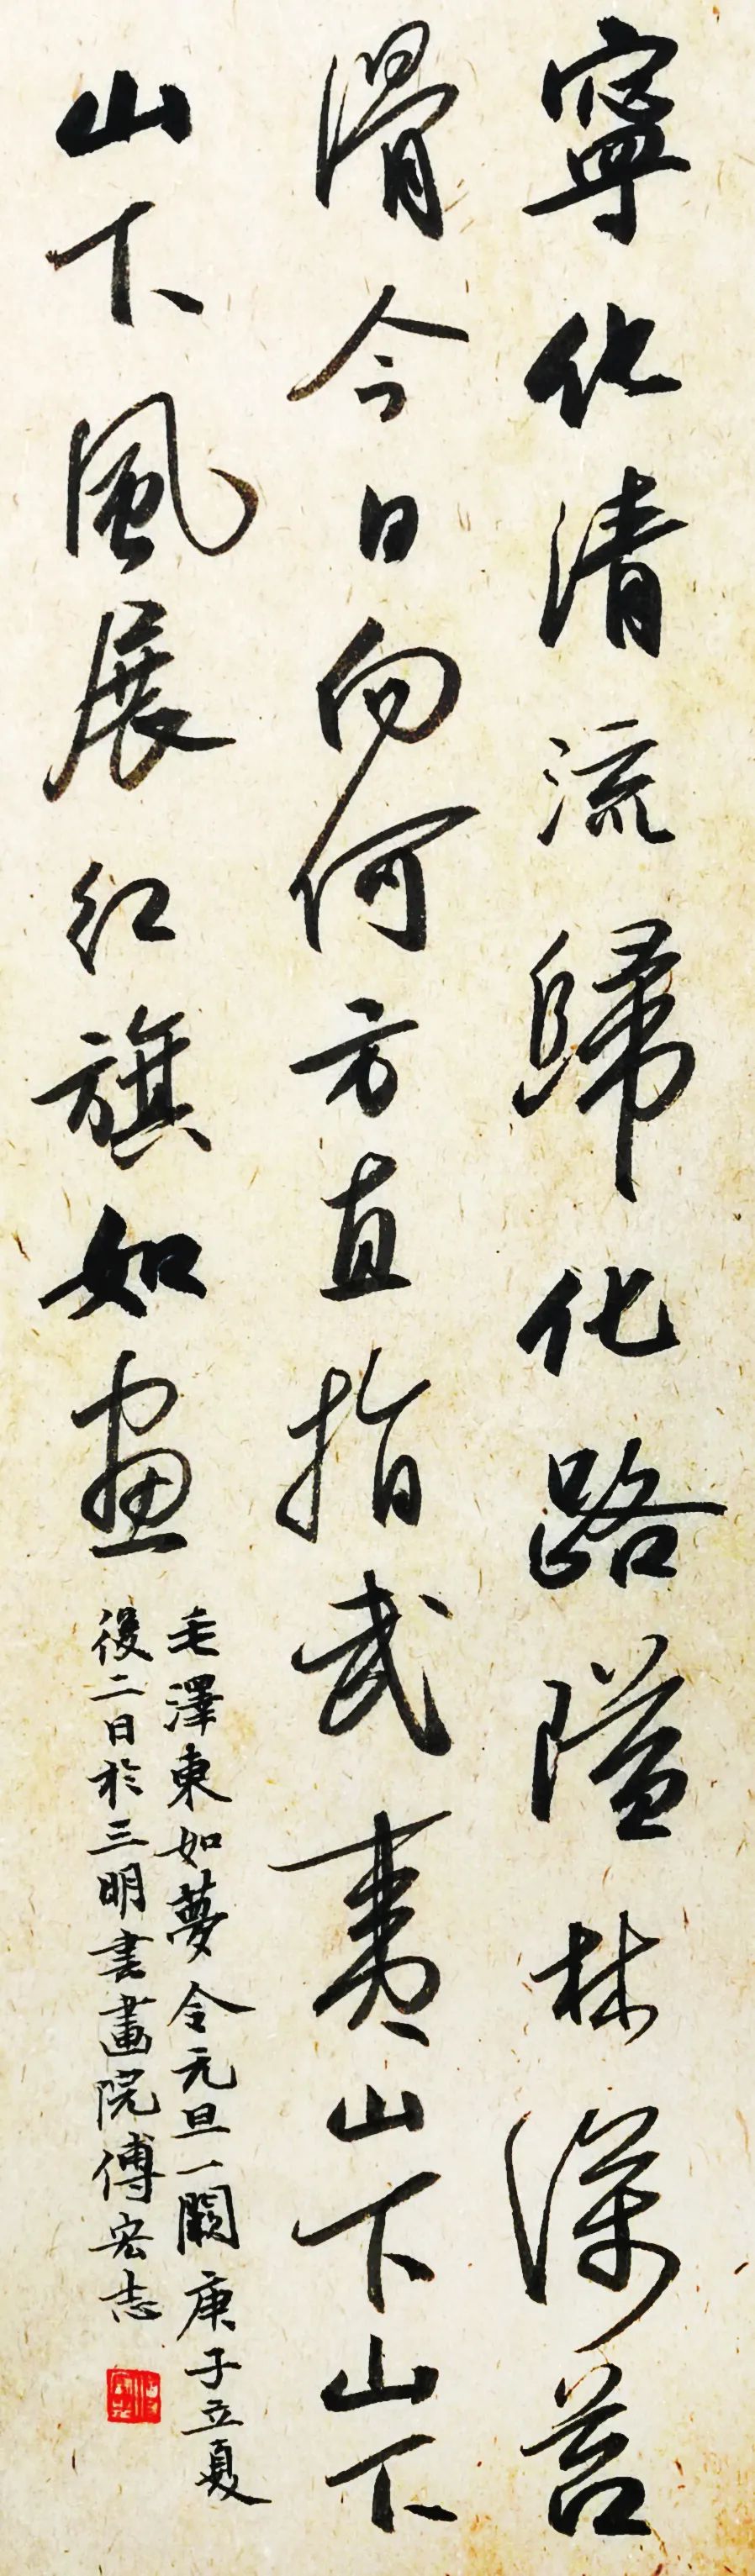 寧化清流歸化路隘林深苔
滑今日向何方直指武夷山下山下
山下風展红旗如畫
毛澤東如夢令元旦一闋庚子立夏
後二日於三明書畫院傅宏志